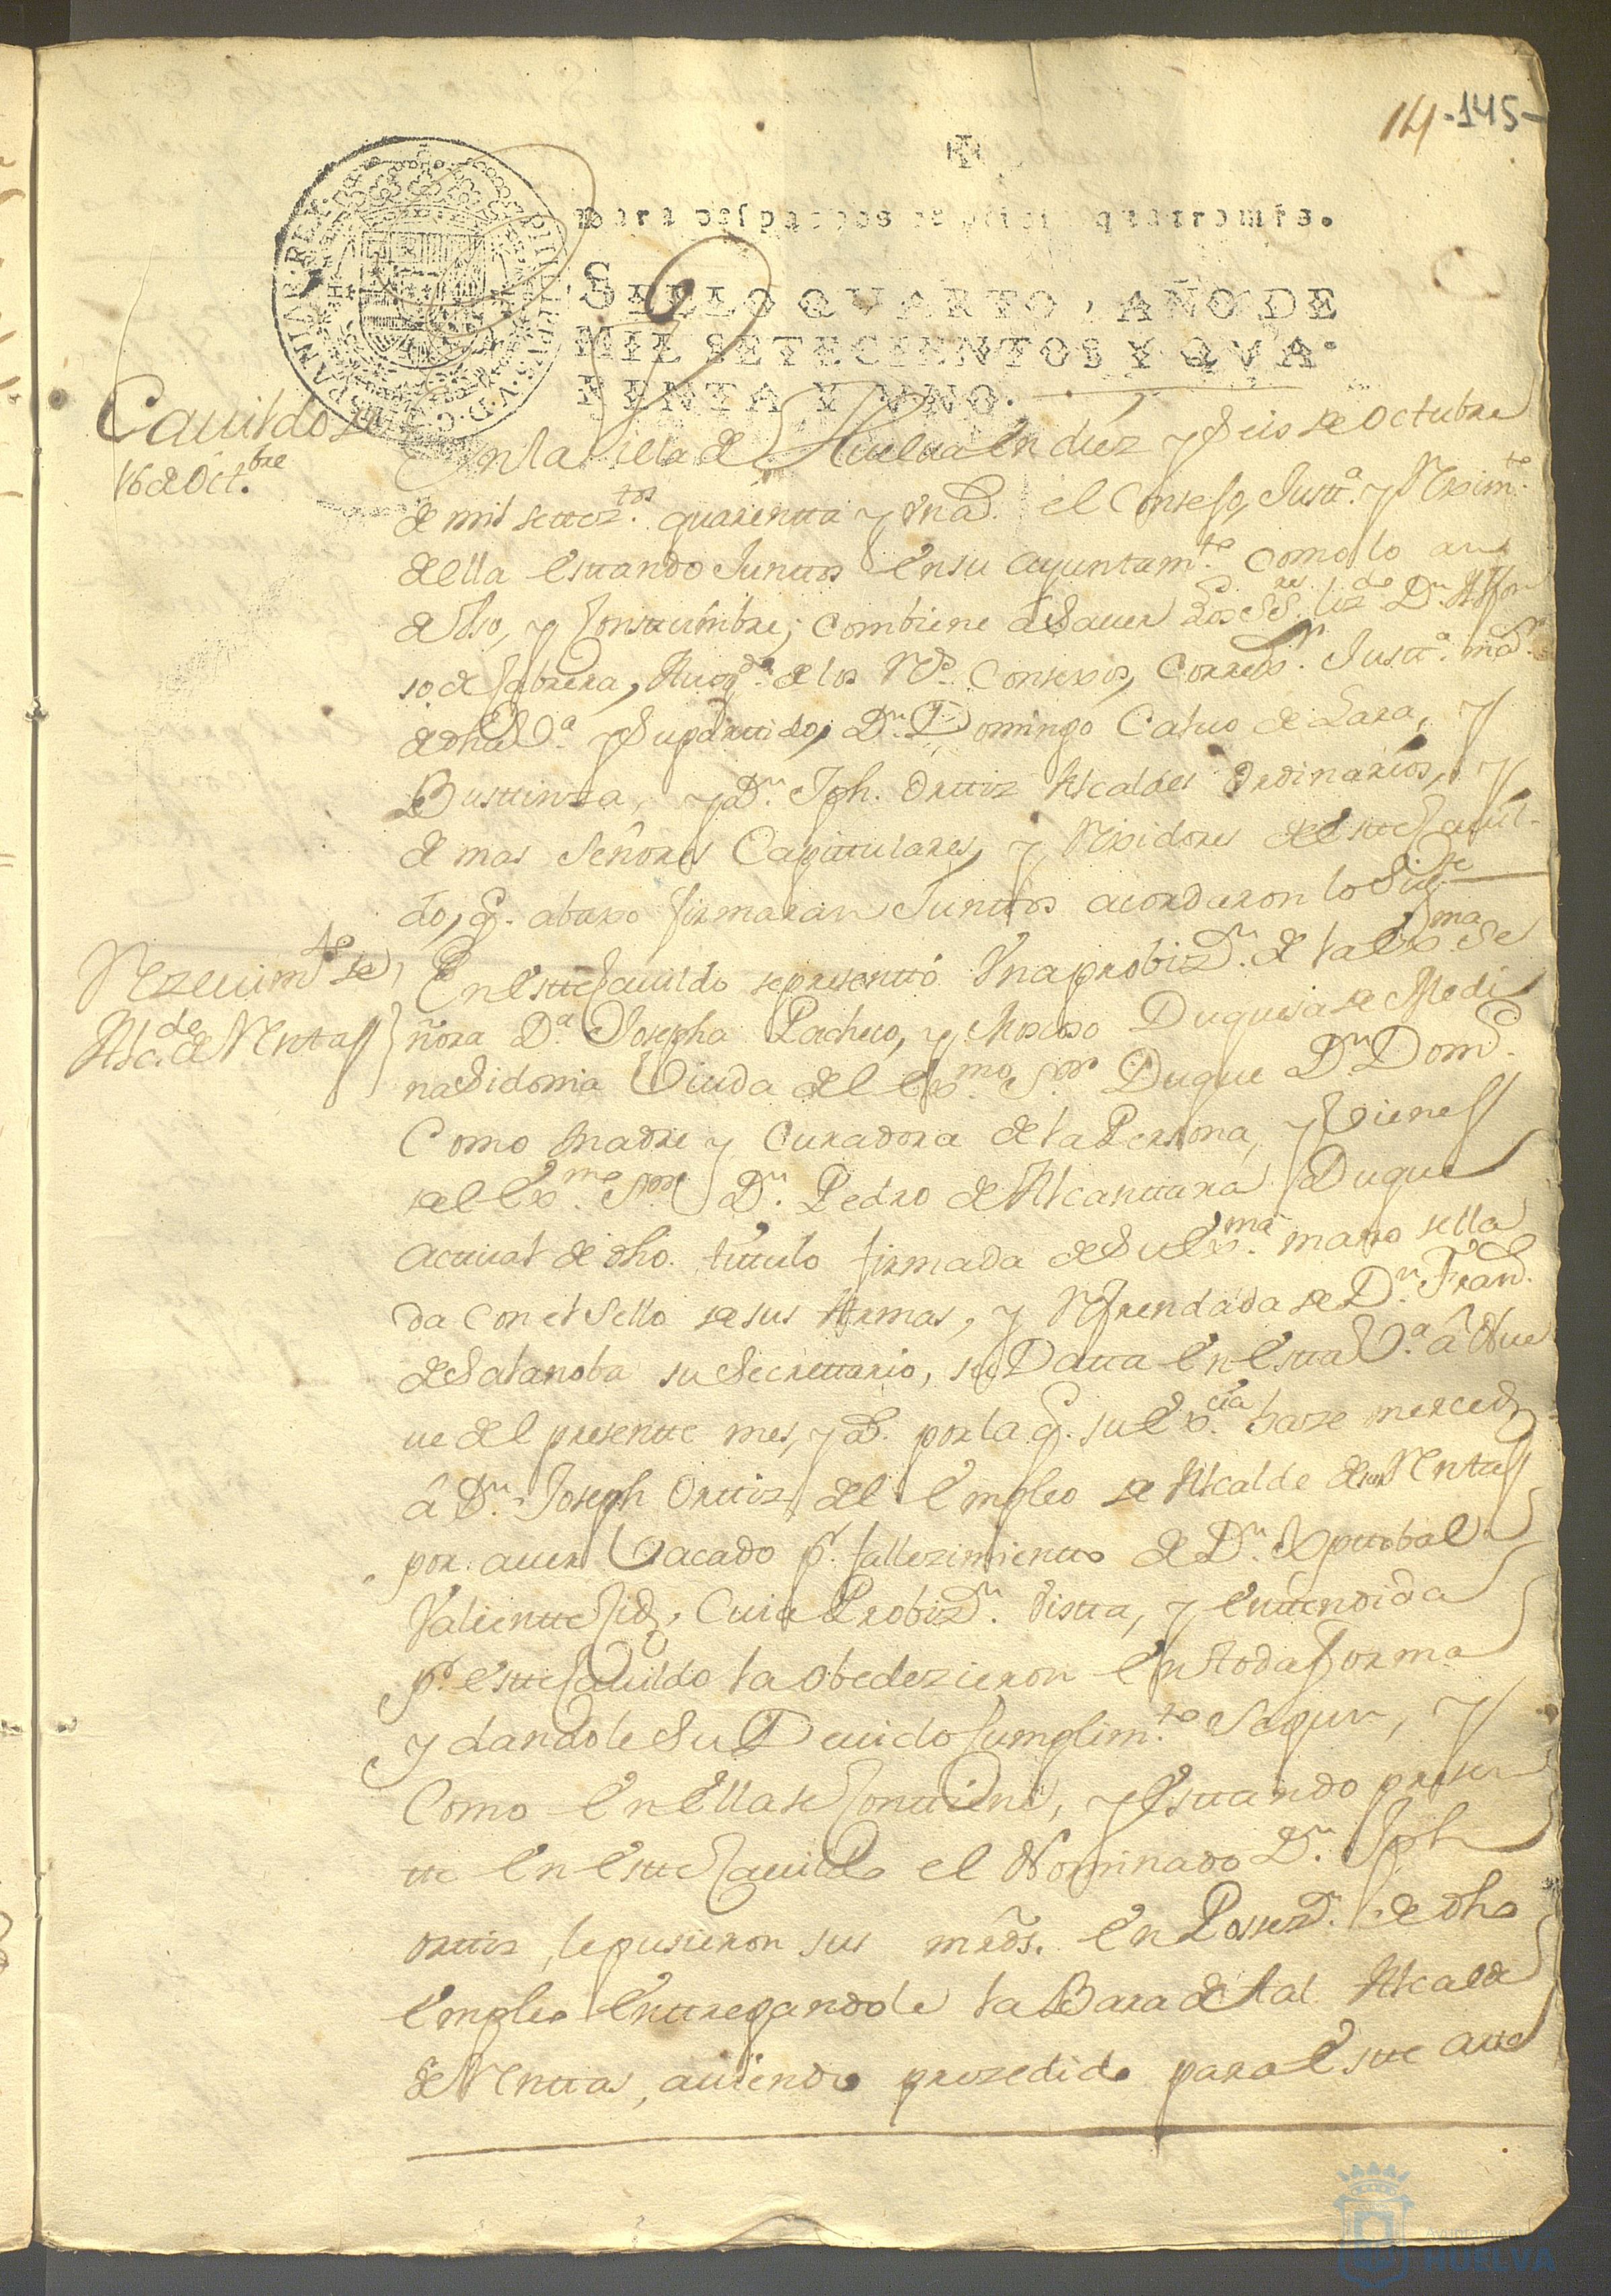 14-145-
para despachos de oficio quatro mrs.
SELLO QVARTO, AÑO DE
MIL SETECIENTOS Y QVA-
RENTA Y VNO.
Cauildo
16 de Octbre
En la Villa de Huelua en diez y Seis de Octubre
de mil settez.tos quarentta y un a.s el Consejo, Justt.a y Reximto
della esttando Junttos en su ayuntamto como lo an
de Vso, y Consttumbre; combiene a Sauer Los SS.res lizdo Dn Alfon
so de Cabrera, Auogdo de los Rs Consexos, Correxr Justt.a mar
de dha Va y Su parttido, Dn Domingo Caluo de Lara, y
Busttinza, y Dn Jph. Orttiz Alcaldes Ordinarios, y
demas Señores Capittulares, y Rexidores de estte Cauil-
do, q. abaxo firmaran Junttos acordaron lo Sigte
Rezeuimto de
Alcde de Rentas
En estte Cauildo se presenttó Vna probizn de la Exma Se
ñora Da Josepha Pacheco, y Moscoso Duquesa de Medi
na Sidonia Viuda del Exmo Sor Duque Dn Domo
Como Madre y Curadora de la Persona, y Vienes
del Exmo Sor Dn Pedro de Alcanttara Duque
acttual de dho. títtulo firmada de Su Exma mano sella
da con el Sello de sus Armas, y Refrendada de Dn Frano
de Salanoba su Secrettario, su Datta en estta Va â Nue
ue del presentte mes, y a.o por la q. su Excia haze merced
â Dn Joseph Orttiz del empleo de Alcalde de sus Renttas
por auer Vacado pr. fallezimientto de Dn Xpttobal
Valientte Cid, Cuia Probizn Vistta, y enttendida
pr estte Cauildo la obedezieron en toda forma
y dandole Su Deuido Cumplimto Segun, y
Como en Ella se Conttiene, y esttando presen
tte en estte Cauildo el Nominado Dn Jph
Orttiz, le pusieron sus mrds. en Possen de dho
empleo enttregandole la Bara de tal Alcalde
de Renttas, auiendo prozedido para estte acto
Ayuntamiento
HUELVA